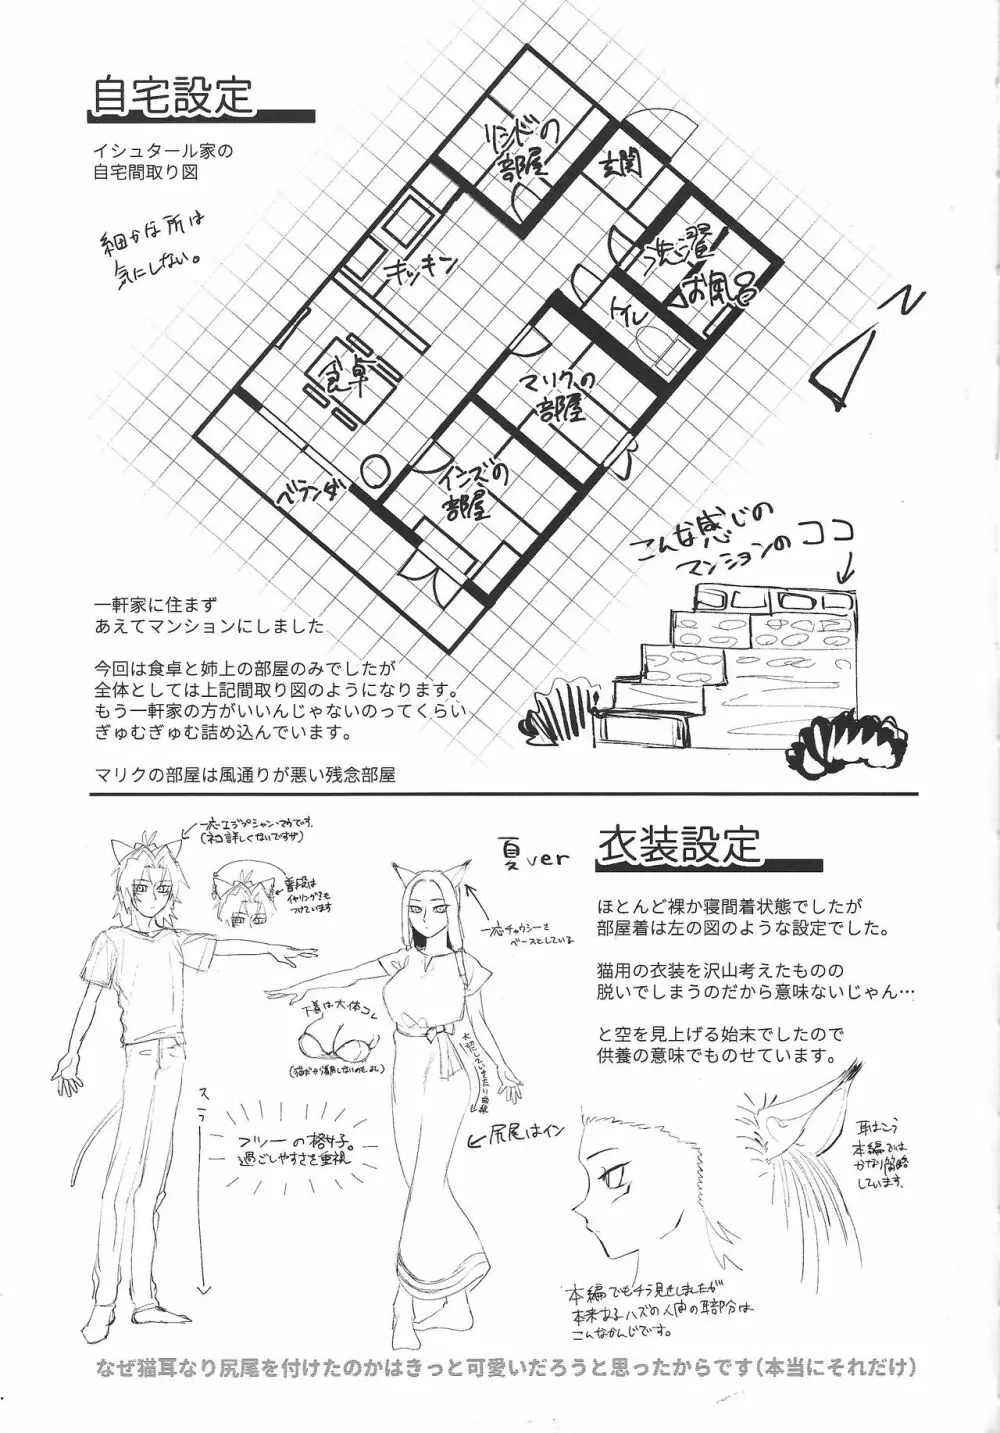 自宅設定
イシュタール家の
自宅間取り図
細かな所は
気にしない。
リシドの
部屋
玄関
洗濯
お風呂
トイレ
キッチン
食卓
マリクの
部屋
イシズの
部屋
ベランダ
N
こんな感じの
マンションの ココ
一軒家に住まず
あえてマンションにしました
今回は食卓と姉上の部屋のみでしたが
全体としては上記間取り図のようになります。
もう一軒家の方がいいんじゃないのってくらい
ぎゅむぎゅむ詰め込んでいます。
マリクの部屋は風通りが悪い残念部屋
一応エジプシャンマウです。
(ネコ詳しくないですが)
普段は
イヤリングも
つけています
夏ver
一応チャウシーを
ベースとしている
下着は大体コレ
スラ
フツーの格好。
過ごしやすさを重視
尻尾はイン
衣装設定
ほとんど裸か寝間着状態でしたが
部屋着は左の図のような設定でした。
猫用の衣装を沢山考えたものの
脱いでしまうのだから意味ないじゃん…
と空を見上げる始末でしたので
供養の意味でものせています。
耳はこう
本編では
かなり簡略
しています。
本編でもチラ見せしましたが
本来あるハズの人間の耳部分は
こんなかんじです。
なぜ猫耳なり尻尾を付けたのかはきっと可愛いだろうと思ったからです(本当にそれだけ)